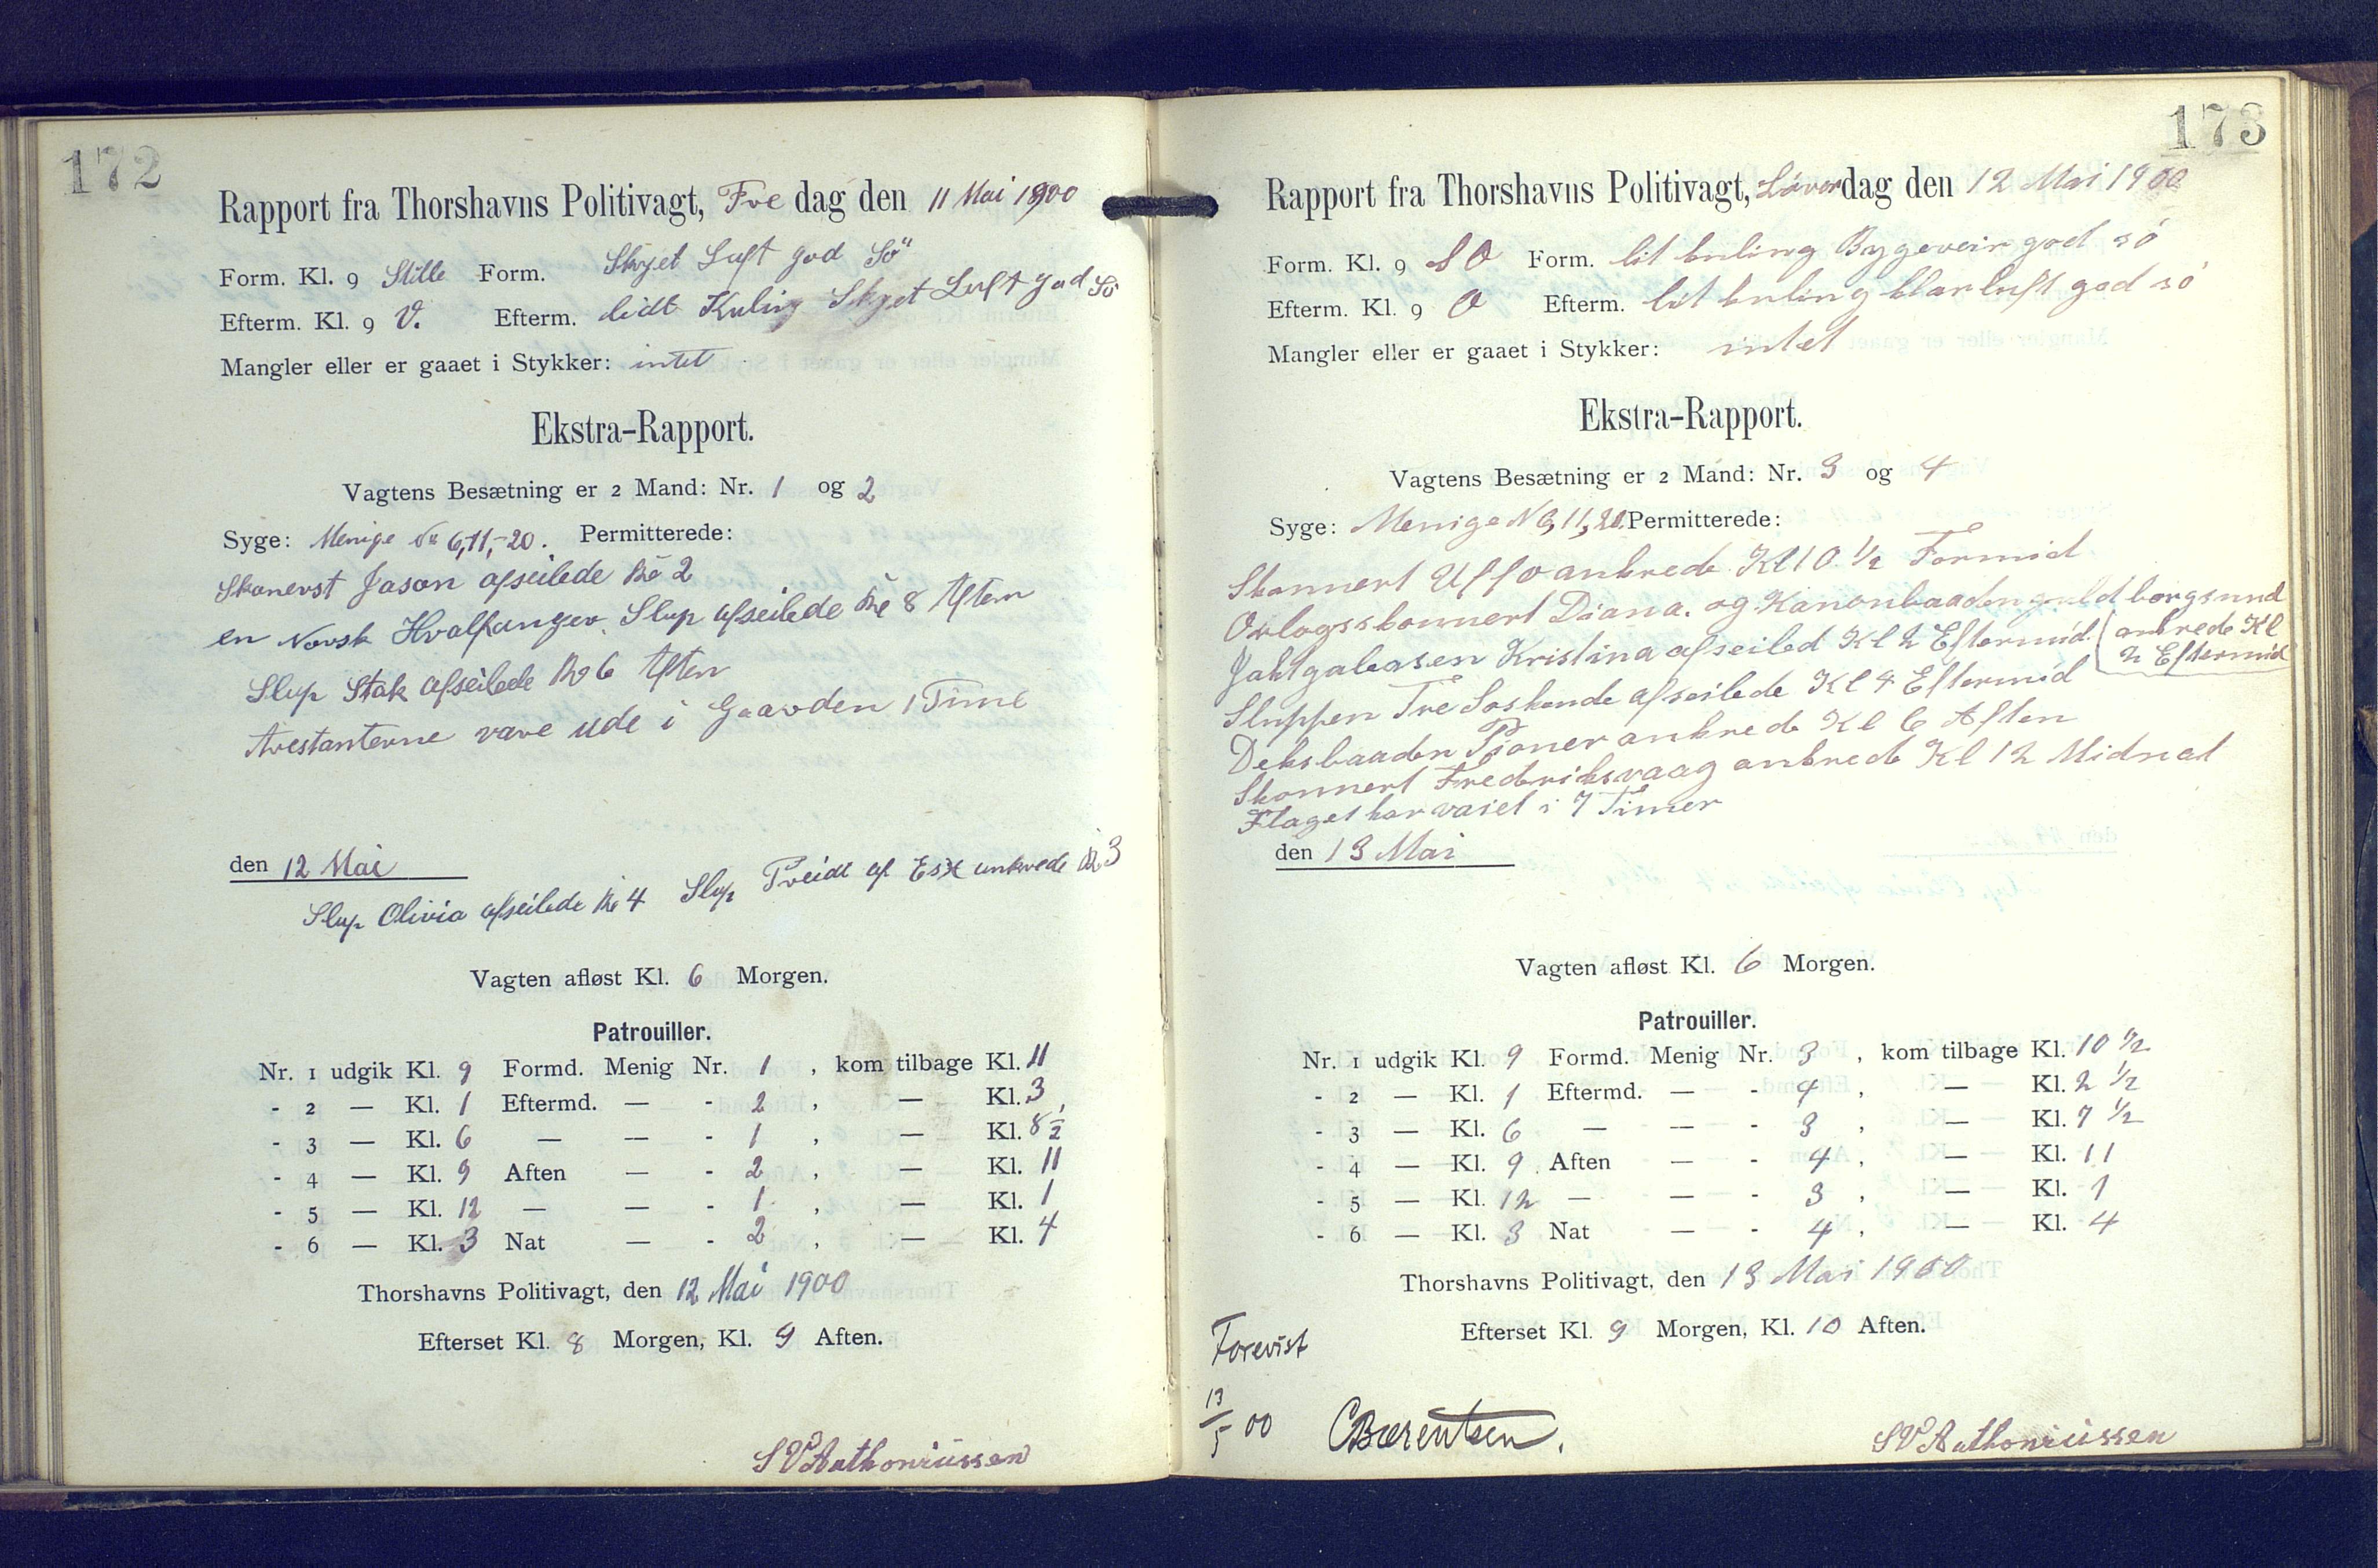 172
Rapport fra Thorshavns Politivagt, Fre dag den 11 Mai 1900
Form. Kl. 9 Stille Form. Skyet Luft god Sö
Efterm. Kl. 9 V. Efterm. lidt Kuling Skyet Luft god Sö
Mangler eller er gaaet i Stykker: intet
Ekstra-Rapport.
Vagtens Besætning er 2 Mand: Nr. 1 og 2
Syge: Menige No 6,11,-20. Permitterede:
Skonerst Jason afseilede Kl 2
en Norsk Hvalfanger Slup afseilede Kl 8 Aften
Slup Stak afseilede Kl 6 Aften
Arestanterne vare ude i Gaarden 1 Time
den 12 Mai
Slup Olivia afseilede Kl 4 Slup af ankrede Kl 3
Vagten afløst Kl. 6 Morgen.
Patrouiller.
Nr. 1 udgik Kl. 9 Formd. Menig Nr. 1 , kom tilbage Kl. 11
- 2 — Kl. 1 Eftermd. — - 2 , — Kl. 3
- 3 — Kl. 6 — — - 1 , — Kl. 8 1/2
- 4 — Kl. 9 Aften — - 2 , — Kl. 11
- 5 — Kl. 12 — — - 1 , — Kl. 1
- 6 — Kl. 3 Nat — - 2 , — Kl. 4
Thorshavns Politivagt, den 12 Mai 1900
Efterset Kl. 8 Morgen, Kl. 9 Aften.
S V Anthoniussen
173
Rapport fra Thorshavns Politivagt, Löverdag den 12 Mai 1900
Form. Kl. 9 S O Form. lit kuling Bygeveir god só
Efterm. Kl. 9 O Efterm. lit kuling klar luft god só
Mangler eller er gaaet i Stykker: intet
Ekstra-Rapport.
Vagtens Besætning er 2 Mand: Nr. 3 og 4
Syge: Menige N 6,11,20. Permitterede:
Skonnert Uffo ankrede Kl 10 1/2 Formid
Orlogsskonnert Diana. og Kanonbaaden guldborgsund
(ankrede Kl 2 Eftermid
Jahtgaleasen Kristina afseiled Kl 2 Eftermid.
Sluppen Tre Soskende afseilede Kl 4 Eftermid
Deksbaaden Pioner ankrede Kl 6 Aften
Skonnert Frederiksvaag ankrede Kl 12 Midnat
Flaget har vaiet i 7 Timer
den 13 Mai
Vagten afløst Kl. 6 Morgen.
Patrouiller.
Nr. 1 udgik Kl. 9 Formd. Menig Nr. 3 , kom tilbage Kl. 10 1/2
- 2 — Kl. 1 Eftermd. — - 4 , — Kl. 2 1/2
- 3 — Kl. 6 — — - 3 , — Kl. 7 1/2
- 4 — Kl. 9 Aften — - 4 , — Kl. 11
- 5 — Kl. 12 — — - 3 , — Kl. 1
- 6 — Kl. 3 Nat — - 4 , — Kl. 4
Thorshavns Politivagt, den 13 Mai 1900
Efterset Kl. 9 Morgen, Kl. 10 Aften.
Forevist
13/5 00 CBærentsen.
S V Anthoniussen